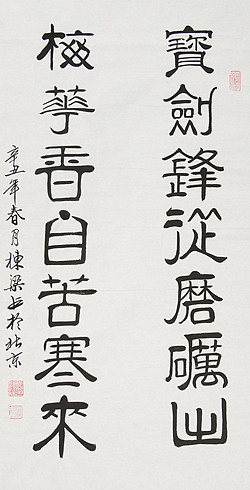 寶劍鋒從磨礪出
梅華香自苦寒來
辛丑年春月棟梁書於北京